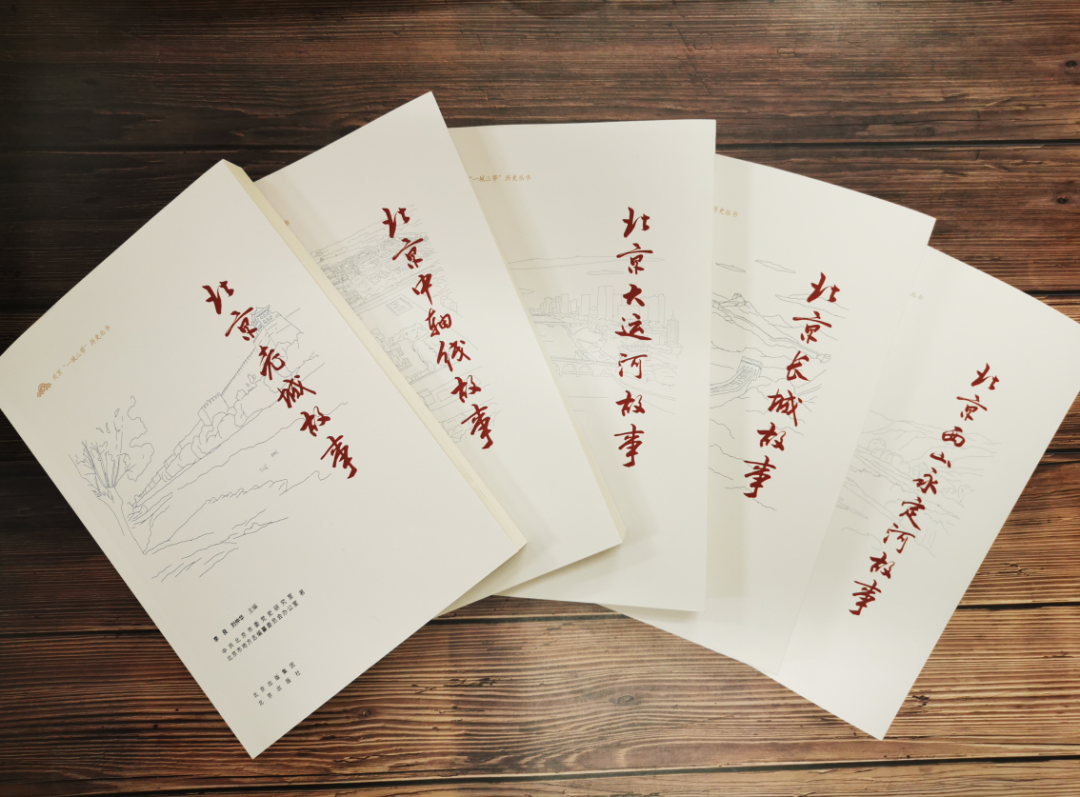 北京“一核三带”历史丛书
北京老城故事
李良 刘伸华 主编
中共北京市委党史研究室
北京市地方志编纂委员会办公室 著
北京出版集团
北京出版社
北京中轴线故事
“一核三带”历史丛书
北京大运河故事
历史丛书
北京长城故事
北京西山永定河故事